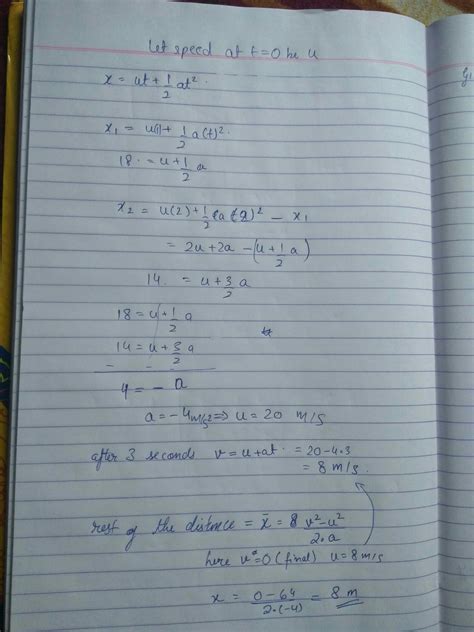 Let speed at t=0 be u
x = ut + 1/2 at².
x₁ = u(1) + 1/2 a(1)².
18. = u + 1/2 a
x₂ = u(2) + 1/2 a(2)² - x₁
= 2u + 2a - (u + 1/2 a)
14. = u + 3/2 a
18 = u + 1/2 a
14 = u + 3/2 a
- - -
4 = - a
a = -4 m/s² ⇒ u = 20 m/s
after 3 seconds v = u + at. = 20 - 4·3
= 8 m/s.
rest of the distance = x̄ = v² - u² / 2·a
here v = 0 (final) u = 8 m/s
x = 0 - 64 / 2·(-4) = 8 m